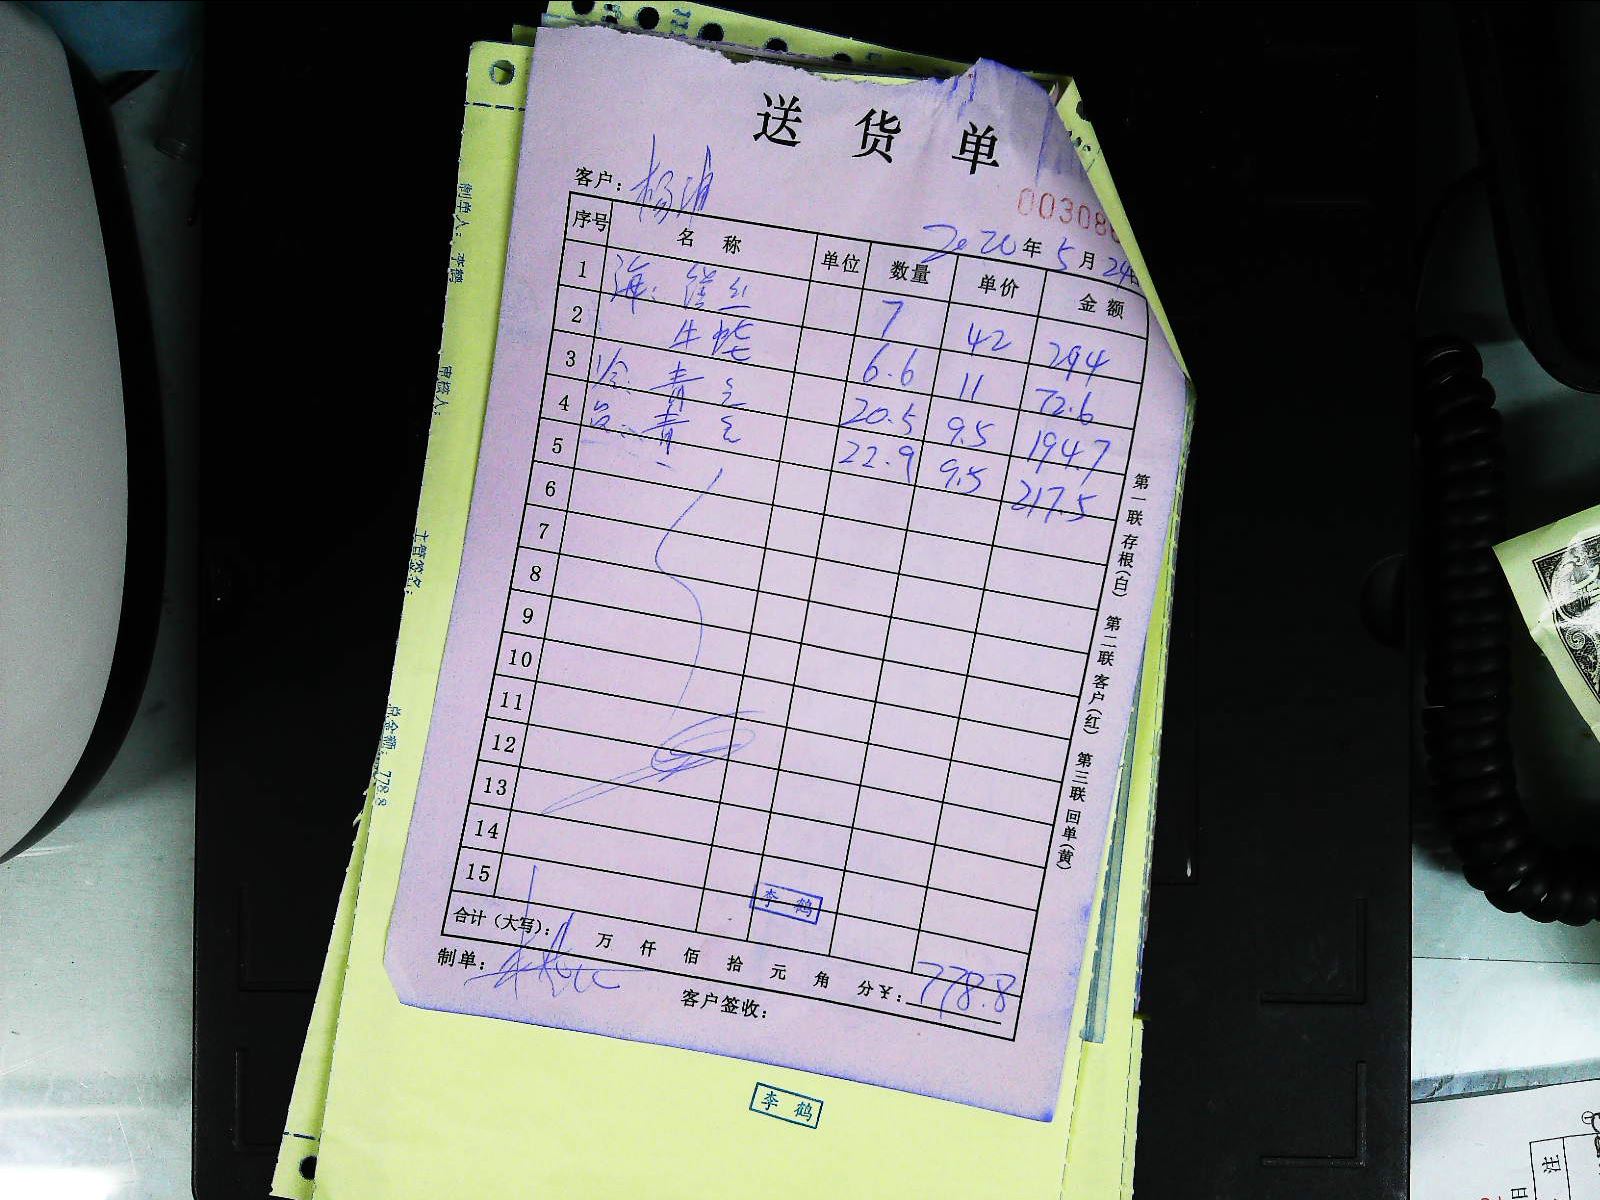 送 货 单
客户: 杨浦
003086
2020年5月24日
序号 名 称 单位 数量 单价 金额
1 7 42 294
2 6.6 11 72.6
3 青 20.5 9.5 194.7
4 青 22.9 9.5 217.5
5
6
7
8
9
10
11
12
13
14
15
李 鹤
合计(大写): 万 仟 佰 拾 元 角 分¥: 778.8
制单:
客户签收:
第一联 存根(白) 第二联 客户(红) 第三联 回单(黄)
制单人: 李鹤
审核人:
主管签名:
总金额: 778.8
李 鹤
注
日